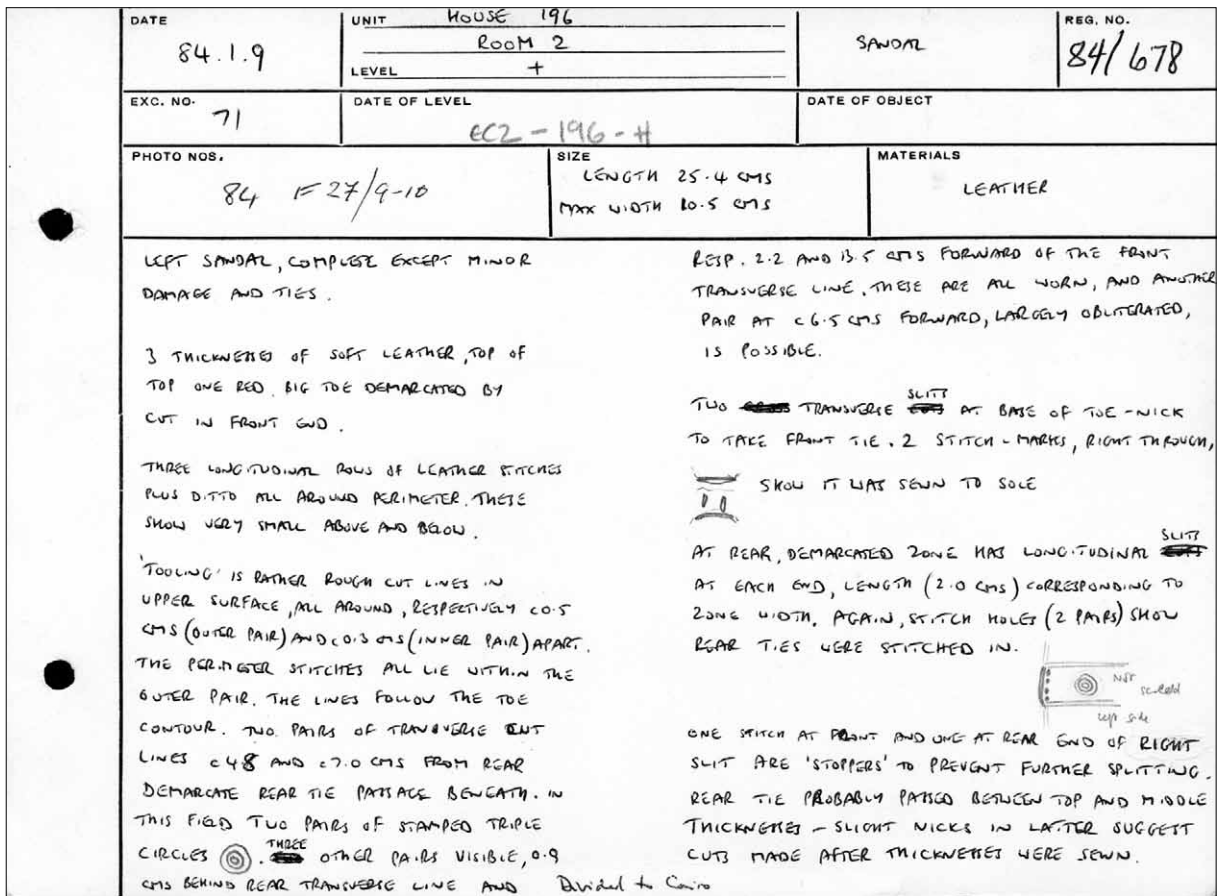 DATE
84.1.9
UNIT HOUSE 196
ROOM 2
LEVEL +
SANDAL
REG. NO.
84/678
EXC. NO.
71
DATE OF LEVEL
EC2-196-H
DATE OF OBJECT
PHOTO NOS.
84 F27/9-10
SIZE
LENGTH 25.4 CMS
MAX WIDTH 10.5 CMS
MATERIALS
LEATHER
LEFT SANDAL, COMPLETE EXCEPT MINOR
DAMAGE AND TIES.
3 THICKNESSES OF SOFT LEATHER, TOP OF
TOP ONE RED. BIG TOE DEMARCATED BY
CUT IN FRONT END.
THREE LONGITUDINAL ROWS OF LEATHER STITCHES
PLUS DITTO ALL AROUND PERIMETER. THESE
SHOW VERY SMALL ABOVE AND BELOW.
'TOOLING' IS RATHER ROUGH CUT LINES IN
UPPER SURFACE, ALL AROUND, RESPECTIVELY c0.5
CMS (OUTER PAIR) AND c0.3 CMS (INNER PAIR) APART.
THE PERIMETER STITCHES ALL LIE WITHIN THE
OUTER PAIR. THE LINES FOLLOW THE TOE
CONTOUR. TWO PAIRS OF TRANSVERSE CUT
LINES c4.8 AND c7.0 CMS FROM REAR
DEMARCATE REAR TIE PASSAGE BENEATH. IN
THIS FIELD TWO PAIRS OF STAMPED TRIPLE
CIRCLES. THREE OTHER PAIRS VISIBLE, 0.9
CMS BEHIND REAR TRANSVERSE LINE AND
RESP. 2.2 AND 13.5 CMS FORWARD OF THE FRONT
TRANSVERSE LINE. THESE ARE ALL WORN, AND ANOTHER
PAIR AT c6.5 CMS FORWARD, LARGELY OBLITERATED,
IS POSSIBLE.
TWO TRANSVERSE SLITS AT BASE OF TOE-NICK
TO TAKE FRONT TIE. 2 STITCH-MARKS, RIGHT THROUGH,
SHOW IT WAS SEWN TO SOLE
AT REAR, DEMARCATED ZONE HAS LONGITUDINAL SLITS
AT EACH END, LENGTH (2.0 CMS) CORRESPONDING TO
ZONE WIDTH. AGAIN, STITCH HOLES (2 PAIRS) SHOW
REAR TIES WERE STITCHED IN.
NOT
scaled
left side
ONE STITCH AT FRONT AND ONE AT REAR END OF RIGHT
SLIT ARE 'STOPPERS' TO PREVENT FURTHER SPLITTING.
REAR TIE PROBABLY PASSED BETWEEN TOP AND MIDDLE
THICKNESSES - SLIGHT NICKS IN LATTER SUGGEST
CUTS MADE AFTER THICKNESSES WERE SEWN.
Divided to Cairo